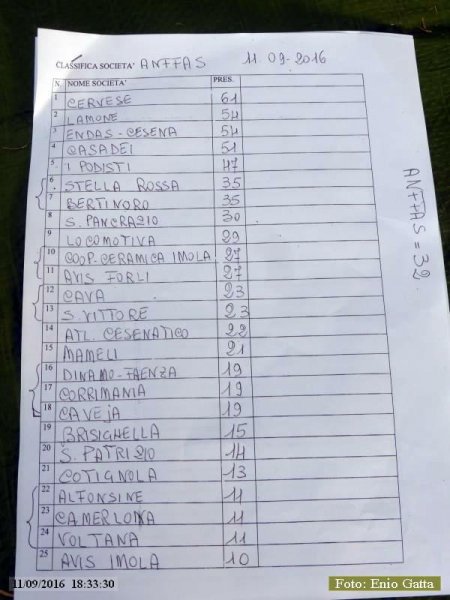 CLASSIFICA SOCIETA' ANFFAS 11.09-2016
N. NOME SOCIETA' PRES.
1 CERVESE 61
2 LAMONE 54
3 ENDAS-CESENA 54
4 CASADEI 51
5 I PODISTI 47
6 STELLA ROSSA 35
7 BERTINORO 35
8 S. PANCRAZIO 30
9 LOCOMOTIVA 29
10 COOP. CERAMICA IMOLA 27
11 AVIS FORLI 27
12 CAVA 23
13 S. VITTORE 23
14 ATL. CESENATICO 22
15 MAMELI 21
16 DINAMO-FAENZA 19
17 CORRIMANIA 19
18 CAVEJA 19
19 BRISIGHELLA 15
20 S. PATRIZIO 14
21 COTIGNOLA 13
22 ALFONSINE 11
23 CAMERLONA 11
24 VOLTANA 11
25 AVIS IMOLA 10
ANFFAS = 32
11/09/2016 18:33:30
Foto: Enio Gatta